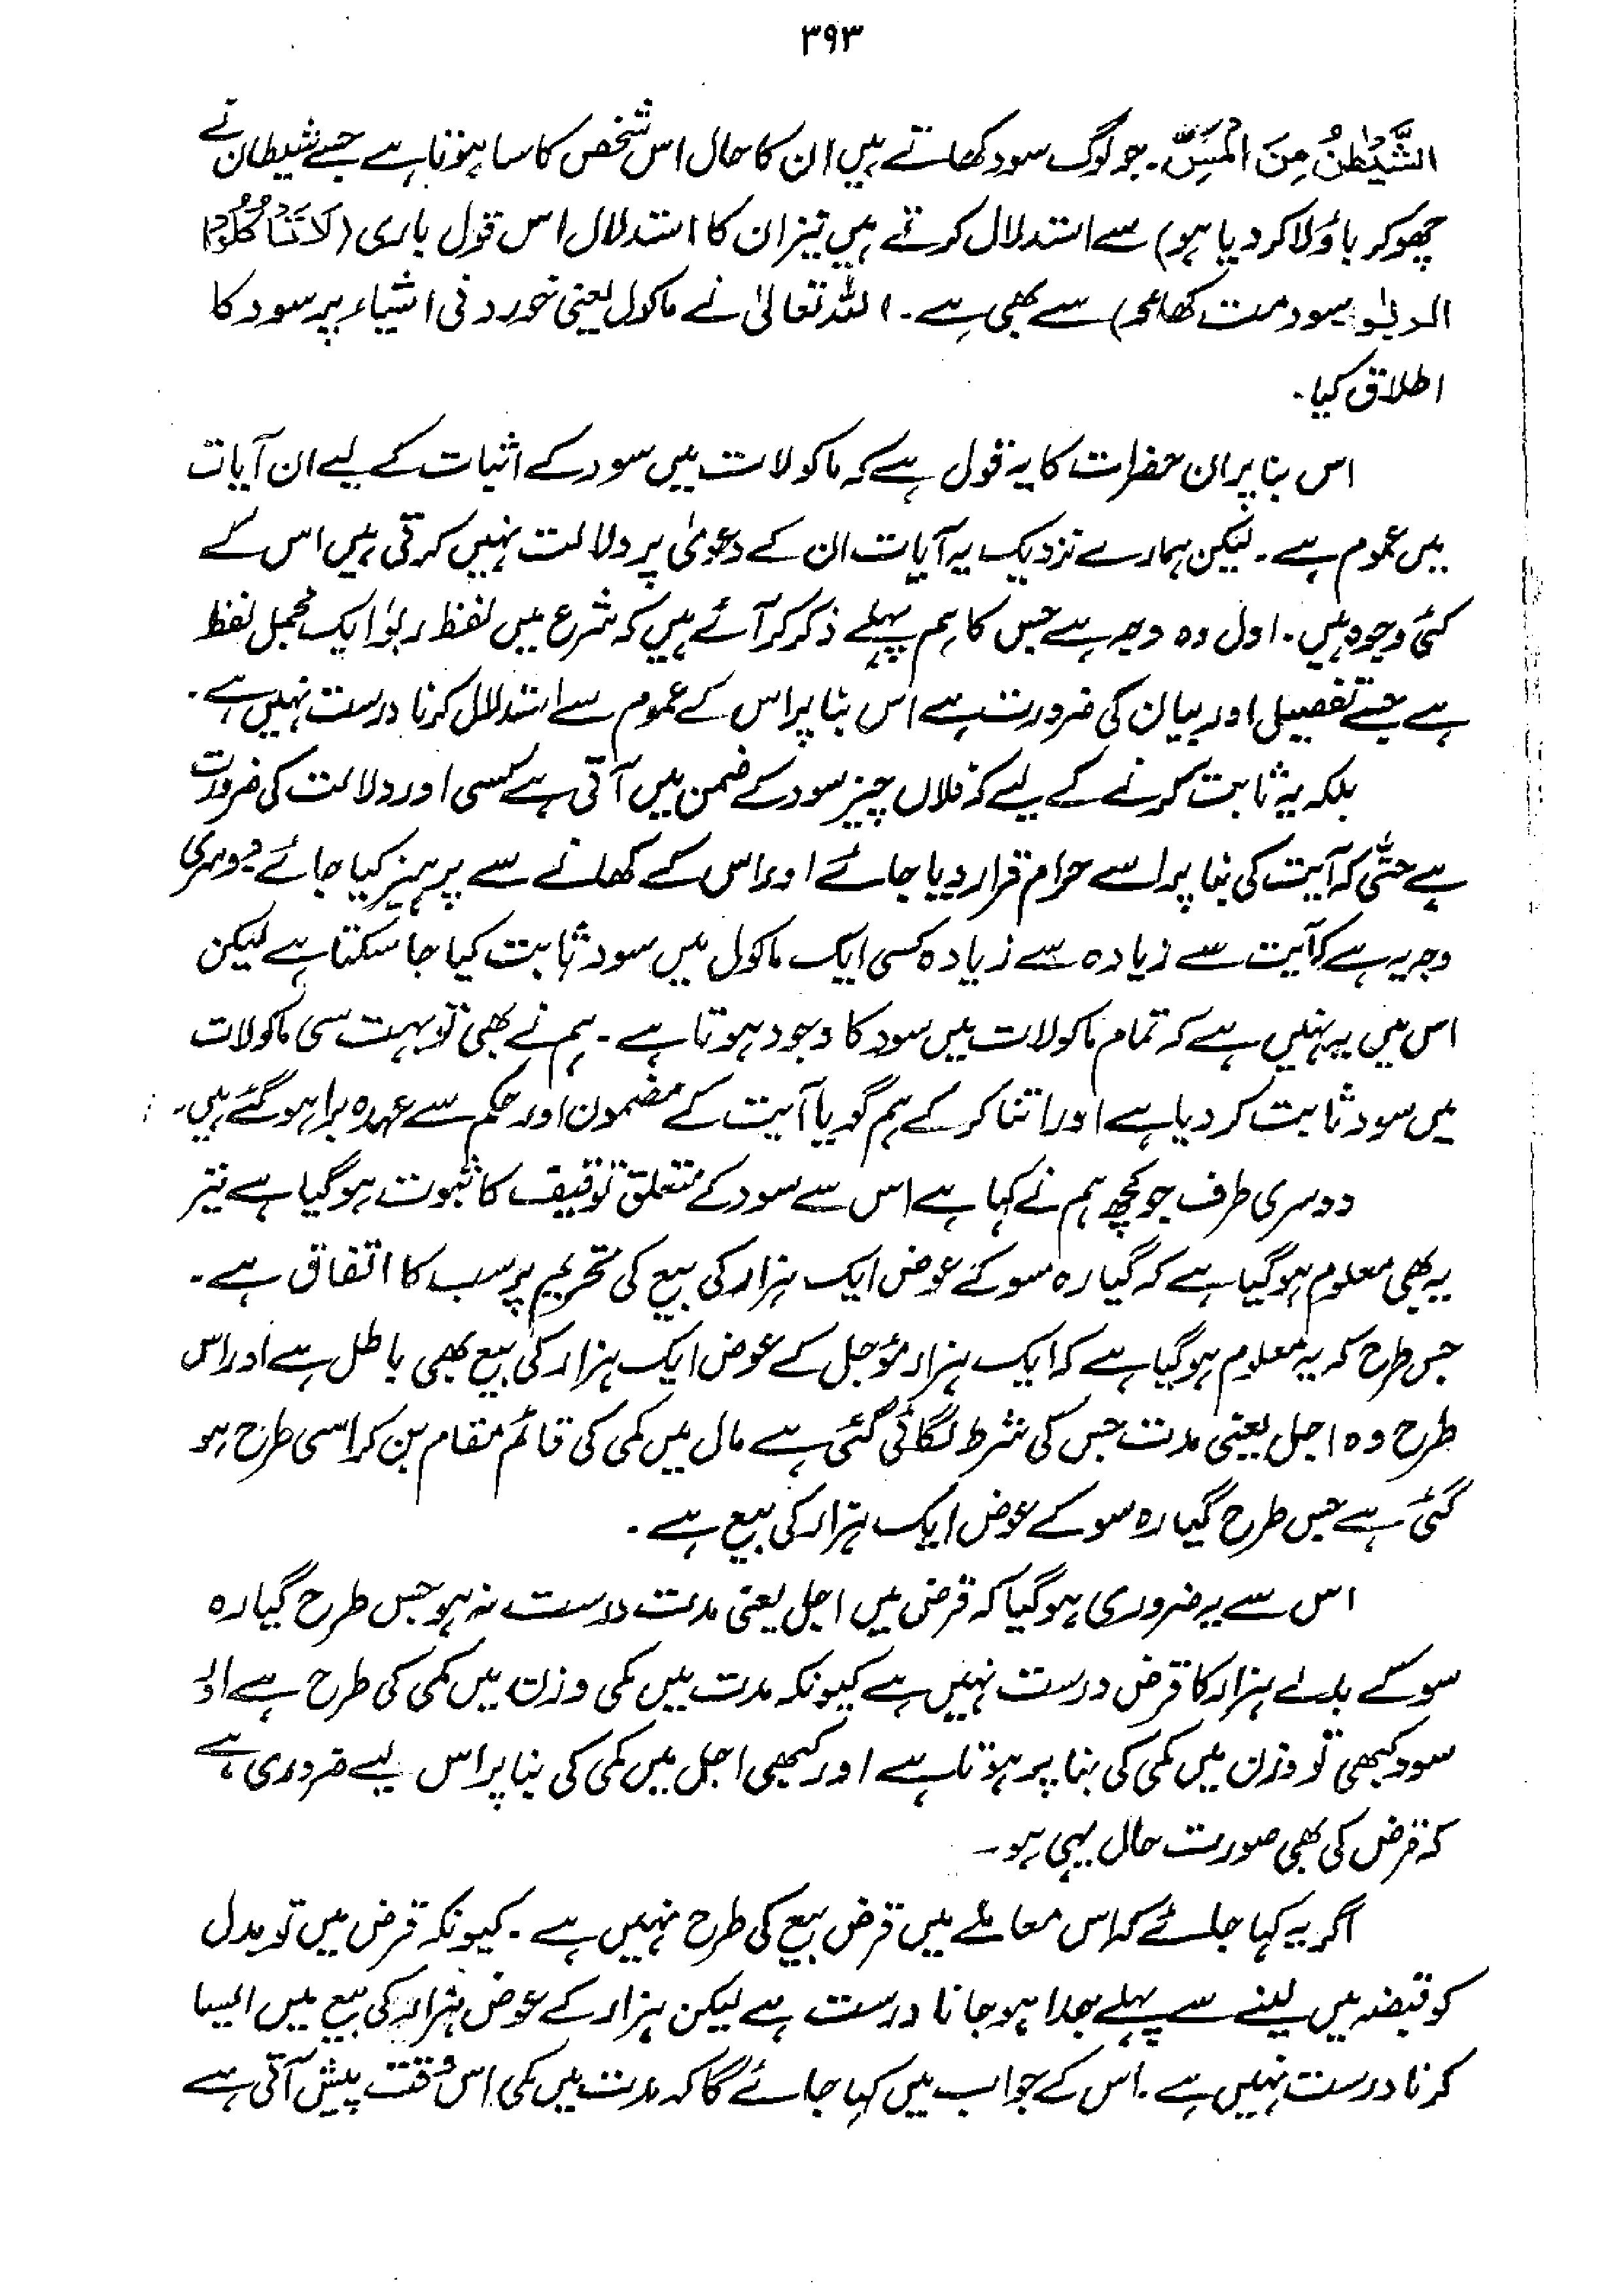 ۳۹۳
الشَّیْطٰنُ مِنَ الْمَسِّ۔ جو لوگ سود کھاتے ہیں ان کا حال اس شخص کا سا ہوتا ہے جسے شیطان نے
چھو کر باؤلا کر دیا ہو) سے استدلال کرتے ہیں نیز ان کا استدلال اس قول باری (لَا تَاْكُلُوا
الربٰوا سود مت کھاؤ) سے بھی ہے۔ اللہ تعالیٰ نے ماکول یعنی خوردنی اشیاء پر سود کا
اطلاق کیا۔
اس بنا پر ان حضرات کا یہ قول ہے کہ ماکولات میں سود کے اثبات کے لیے ان آیات
میں عموم ہے۔ لیکن ہمارے نزدیک یہ آیات ان کے دعویٰ پر دلالت نہیں کرتی ہیں اس کے
کئی وجوہ ہیں۔ اول وہ وجہ ہے جس کا ہم پہلے ذکر کر آئے ہیں کہ شرع میں لفظ ربوٰا ایک مجمل لفظ
ہے جسے تفصیل اور بیان کی ضرورت ہے اس بنا پر اس کے عموم سے استدلال کرنا درست نہیں ہے۔
بلکہ یہ ثابت کرنے کے لیے کہ فلاں چیز سود کے ضمن میں آتی ہے کسی اور دلالت کی ضرورت
ہے حتّٰی کہ آیت کی بنا پر اسے حرام قرار دیا جائے اور اس کے کھانے سے پرہیز کیا جائے دوسری
وجہ یہ ہے کہ آیت سے زیادہ سے زیادہ کسی ایک ماکول میں سود ثابت کیا جا سکتا ہے لیکن
اس میں یہ نہیں ہے کہ تمام ماکولات میں سود کا وجود ہوتا ہے۔ ہم نے بھی تو بہت سی ماکولات
میں سود ثابت کر دیا ہے اور اتنا کر کے ہم گویا آیت کے مضمون اور حکم سے عہدہ برا ہو گئے ہیں۔
دوسری طرف جو کچھ ہم نے کہا ہے اس سے سود کے متعلق توقیف کا ثبوت ہو گیا ہے نیز
یہ بھی معلوم ہو گیا ہے کہ گیارہ سو کے عوض ایک ہزار کی بیع کی تحریم پر سب کا اتفاق ہے۔
جس طرح کہ یہ معلوم ہو گیا ہے کہ ایک ہزار مؤجل کے عوض ایک ہزار کی بیع بھی باطل ہے اور اس
طرح وہ اجل یعنی مدت جس کی شرط لگائی گئی ہے مال میں کمی کی قائم مقام بن کر اسی طرح ہو
گئی ہے جس طرح گیارہ سو کے عوض ایک ہزار کی بیع ہے۔
اس سے یہ ضروری ہو گیا کہ قرض میں اجل یعنی مدت درست نہ ہو جس طرح گیارہ
سو کے بدلے ہزار کا قرض درست نہیں ہے کیونکہ مدت میں کمی وزن میں کمی کی طرح ہے اور
سود کبھی تو وزن میں کمی کی بنا پر ہوتا ہے اور کبھی اجل میں کمی کی بنا پر اس لیے ضروری ہے
کہ قرض کی بھی صورت حال یہی ہو۔
اگر یہ کہا جائے کہ اس معاملے میں قرض بیع کی طرح نہیں ہے۔ کیونکہ قرض میں تو بدل
کو قبضہ میں لینے سے پہلے جدا ہو جانا درست ہے لیکن ہزار کے عوض ہزار کی بیع میں ایسا
کرنا درست نہیں ہے۔ اس کے جواب میں کہا جائے گا کہ مدت میں کمی اس وقت پیش آتی ہے